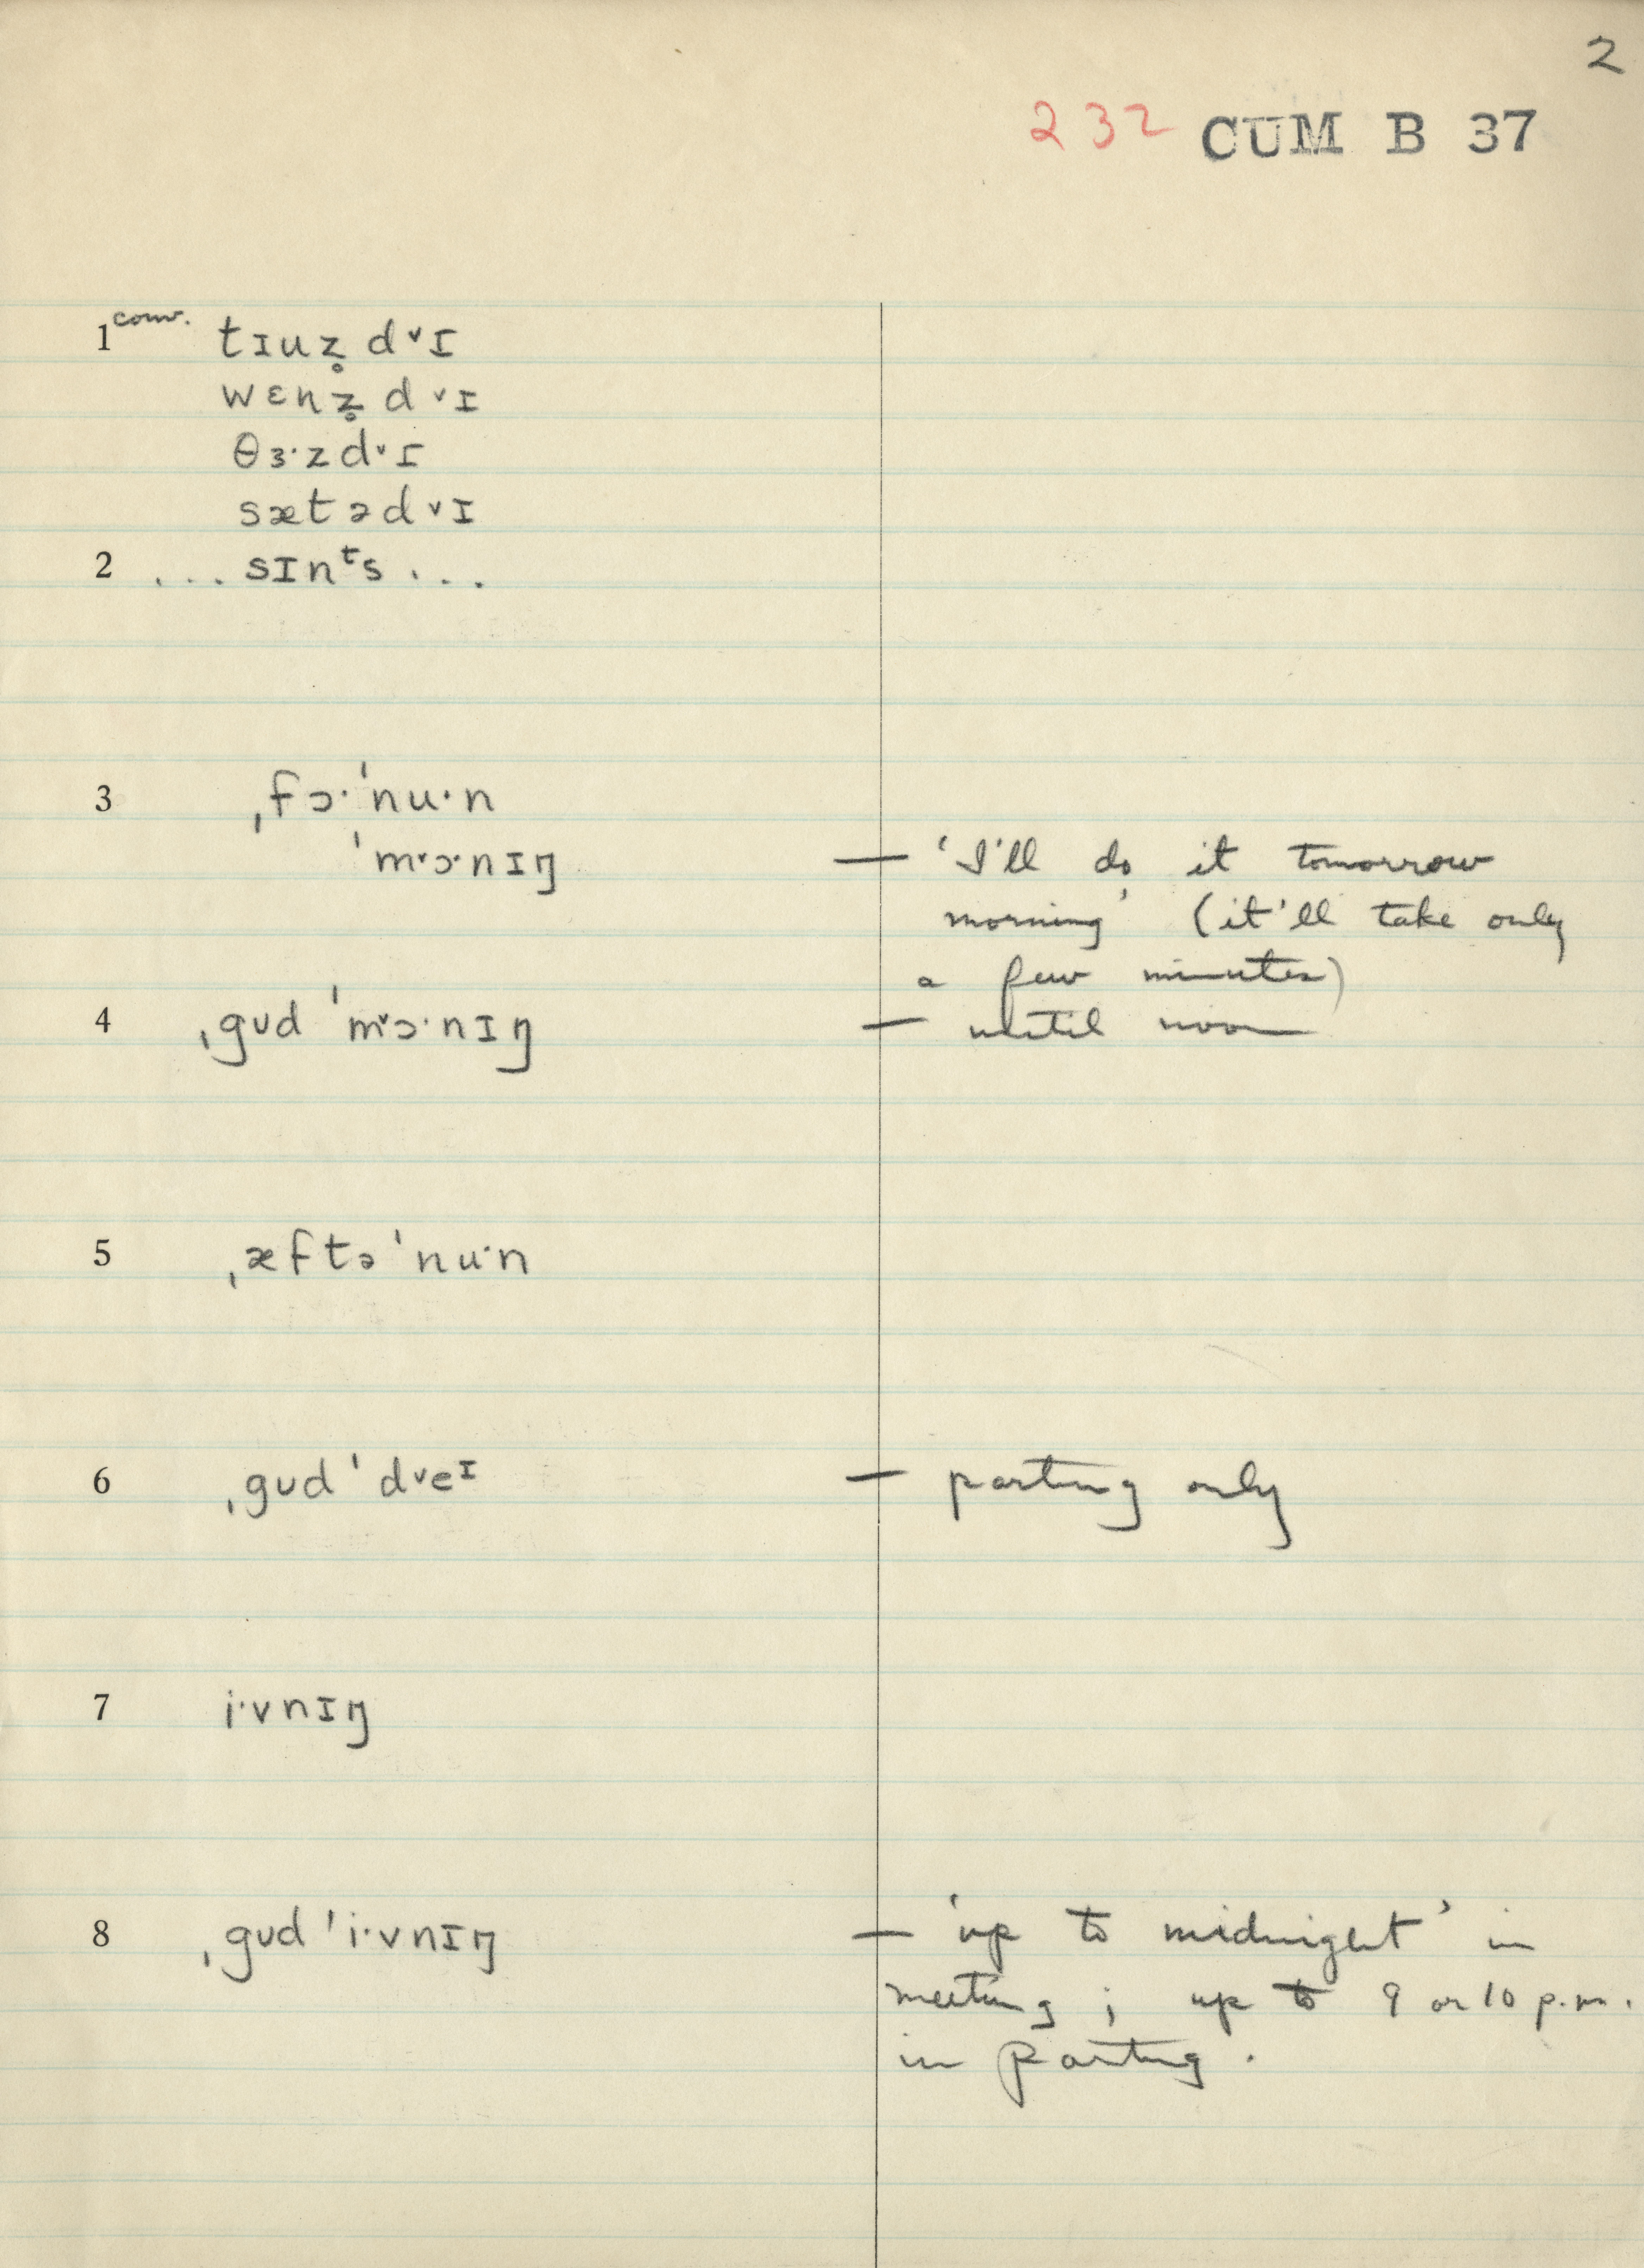 2
232 CUM B 37
1 conv. tɪuz̥dᵛɪ
wɛnz̥dᵛɪ
θɜ·zdᵛɪ
sætədᵛɪ
2 ... sɪnᵗs ...
3 ˌfɔ·ˈnu·n
ˈmᵛɔ·nɪŋ — 'I'll do it tomorrow
morning' (it'll take only
a few minutes)
4 ˌgʊd ˈmᵛɔ·nɪŋ — until noon
5 ˌæftəˈnu·n
6 ˌgʊd ˈdᵛeᶦ — parting only
7 i·vnɪŋ
8 ˌgʊd ˈi·vnɪŋ — 'up to midnight' in
meeting; up to 9 or 10 p.m.
in parting.